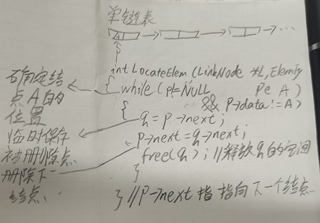 单链表
A
P
int LocateElem (LinkNode *L, ElemType A)
{ while (P!=NULL
&& P->data!=A)
{
q = P->next;
P->next = q->next;
free(q); //释放q的空间
}
} //P->next 指指向下一个结点
确定结
点A的
位置
临时保存
被删除结点
删除下一
结点